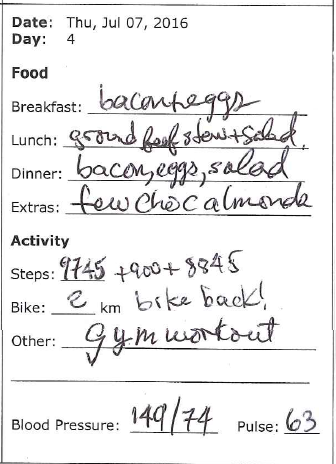 Date: Thu, Jul 07, 2016
Day: 4
Food
Breakfast: bacon+eggs
Lunch: ground beef stew+salad
Dinner: bacon,eggs,salad
Extras: few choc almonds
Activity
Steps: 9745 +900+ 8845
Bike: 2 km bike back!
Other: gym workout
Blood Pressure: 149/74 Pulse: 63